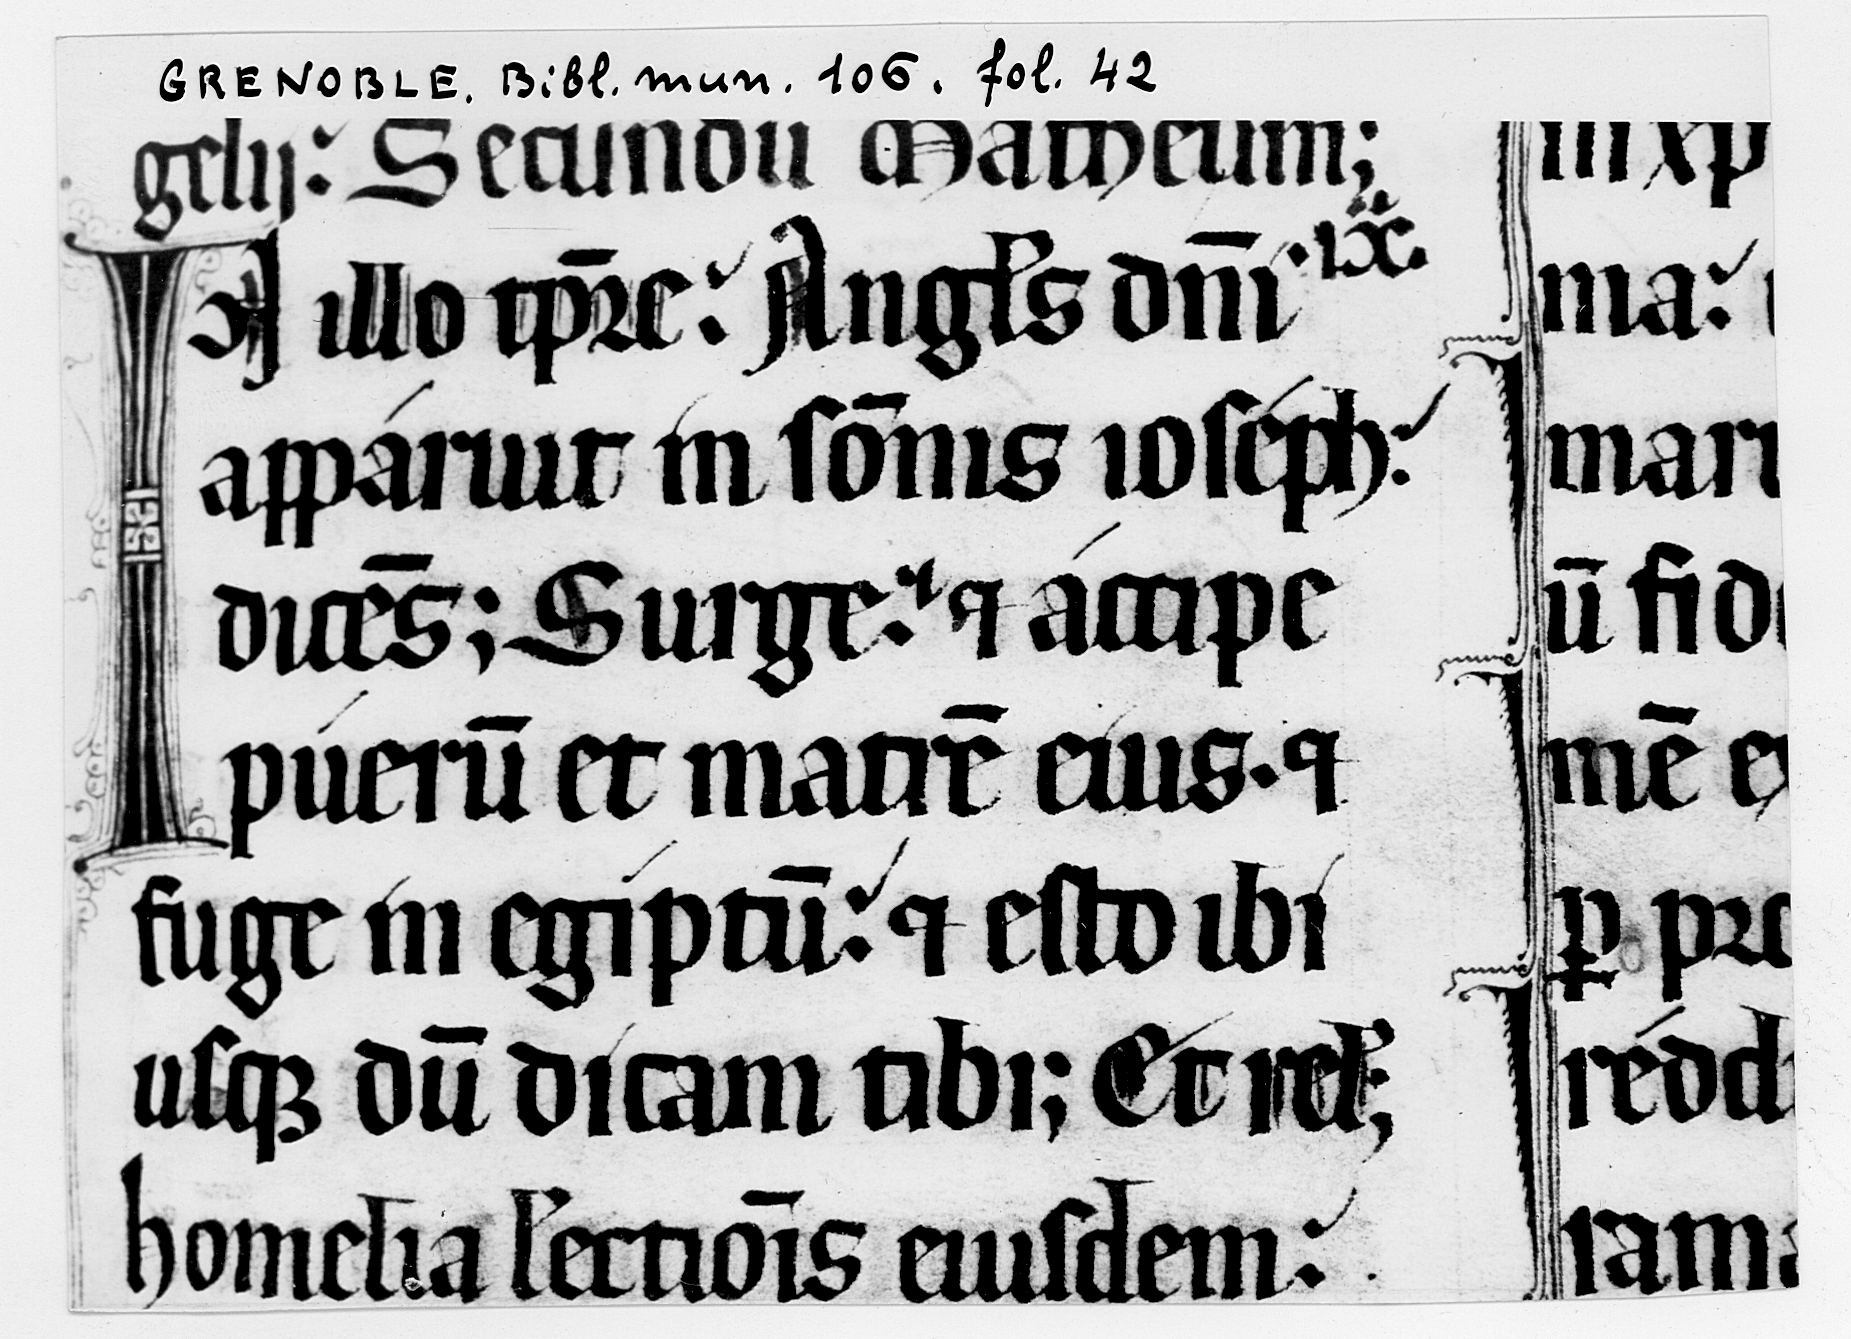 GRENOBLE. Bibl. mun. 106. fol. 42
gelij: Secundū Matheum;
IN illo tp̄re: Angłs dn̄i ·ix·
appáruit in sōnis ioséph:
dicēs; Surge: ⁊ áccipe
púerū et matrē eius. ⁊
fuge in egíptū: ⁊ esto ibi
usqꝫ dū dícam tibi; Et relꝭ;
homelia lectiōis eiusdem:
in xp
ma:
mari
ū fide
mē ex
ꝑ pro
rédd
rama